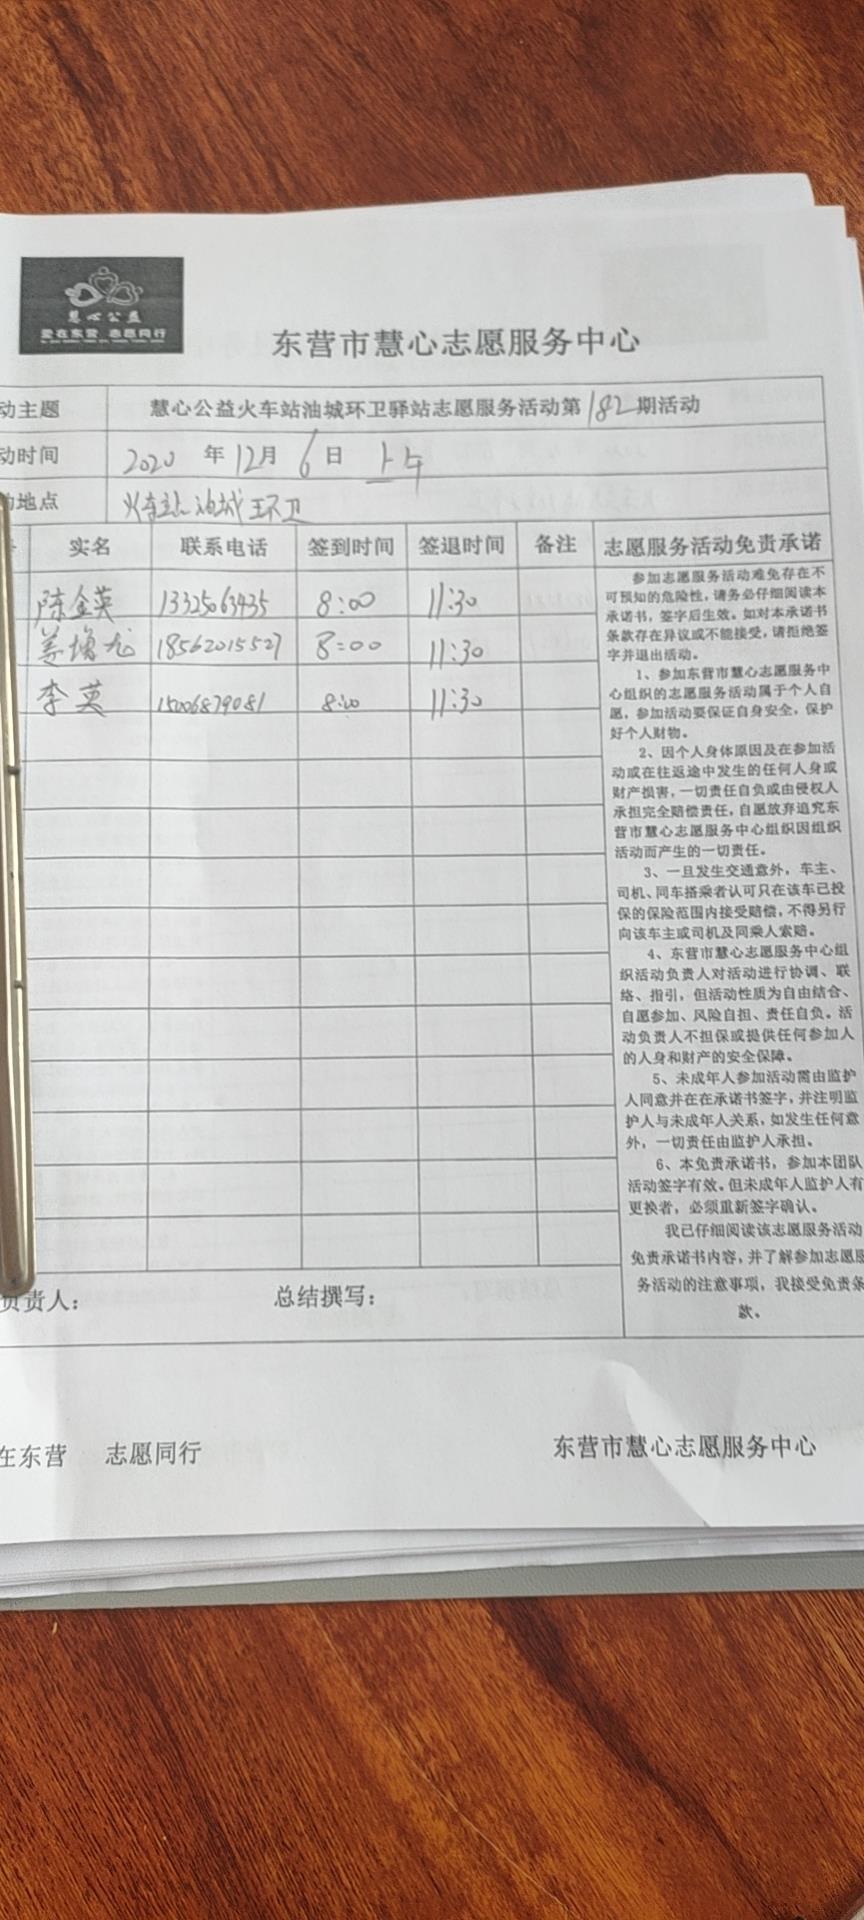 慧心公益
爱在东营 志愿同行
东营市慧心志愿服务中心
动主题 慧心公益火车站油城环卫驿站志愿服务活动第182期活动
动时间 2020 年12月 6日 上午
动地点 火车站油城环卫
实名 联系电话 签到时间 签退时间 备注 志愿服务活动免责承诺
陈金英 13325063435 8:00 11:30
姜增龙 18562015527 8:00 11:30
李英 15006879081 8:00 11:30
参加志愿服务活动难免存在不
可预知的危险性，请务必仔细阅读本
承诺书，签字后生效。如对本承诺书
条款存在异议或不能接受，请拒绝签
字并退出活动。
1、参加东营市慧心志愿服务中
心组织的志愿服务活动属于个人自
愿，参加活动要保证自身安全，保护
好个人财物。
2、因个人身体原因及在参加活
动或在往返途中发生的任何人身或
财产损害，一切责任自负或由侵权人
承担完全赔偿责任，自愿放弃追究东
营市慧心志愿服务中心组织因组织
活动而产生的一切责任。
3、一旦发生交通意外，车主、
司机、同车搭乘者认可只在该车已投
保的保险范围内接受赔偿，不得另行
向该车主或司机及同乘人索赔。
4、东营市慧心志愿服务中心组
织活动负责人对活动进行协调、联
络、指引，但活动性质为自由结合、
自愿参加、风险自担、责任自负。活
动负责人不担保或提供任何参加人
的人身和财产的安全保障。
5、未成年人参加活动需由监护
人同意并在在承诺书签字，并注明监
护人与未成年人关系，如发生任何意
外，一切责任由监护人承担。
6、本免责承诺书，参加本团队
活动签字有效。但未成年人监护人有
更换者，必须重新签字确认。
我已仔细阅读该志愿服务活动
免责承诺书内容，并了解参加志愿服
务活动的注意事项，我接受免责条
款。
负责人： 总结撰写：
在东营 志愿同行 东营市慧心志愿服务中心